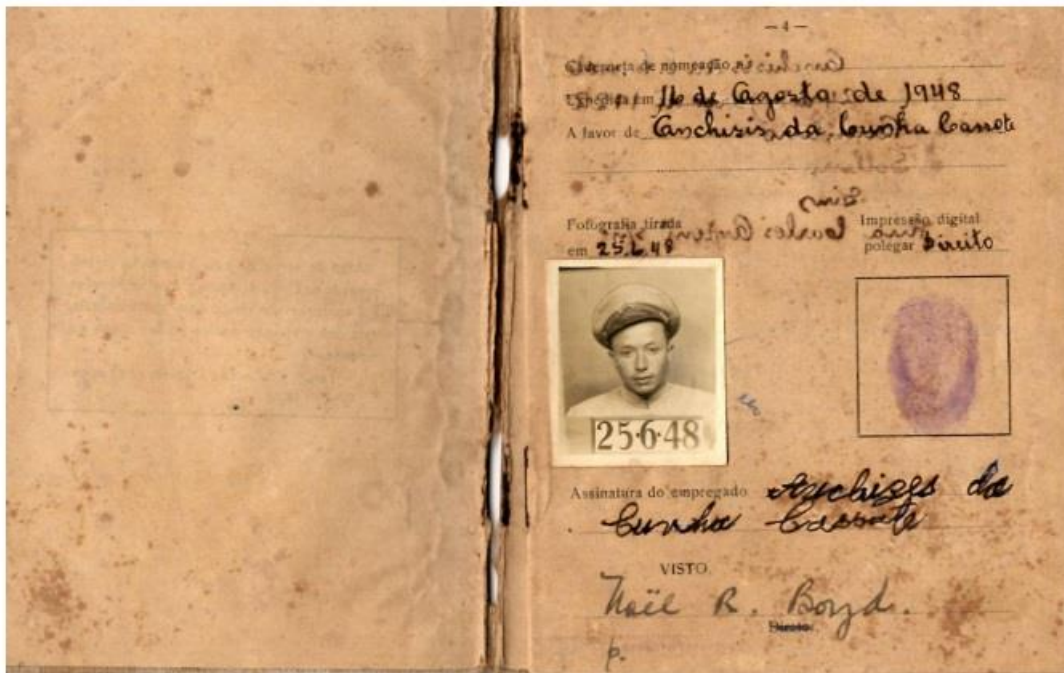 —4—
Caderneta de nomeação nº
Expedida em 16 de Agosto de 1948
A favor de Anchisis da Cunha Cassote
Fotografia tirada
em 25.6.48
Impressão digital
polegar Direito
25·6·48
Assinatura do empregado Anchises da
Cunha Cassote
VISTO.
Noël R. Boyd.
Diretor
p.